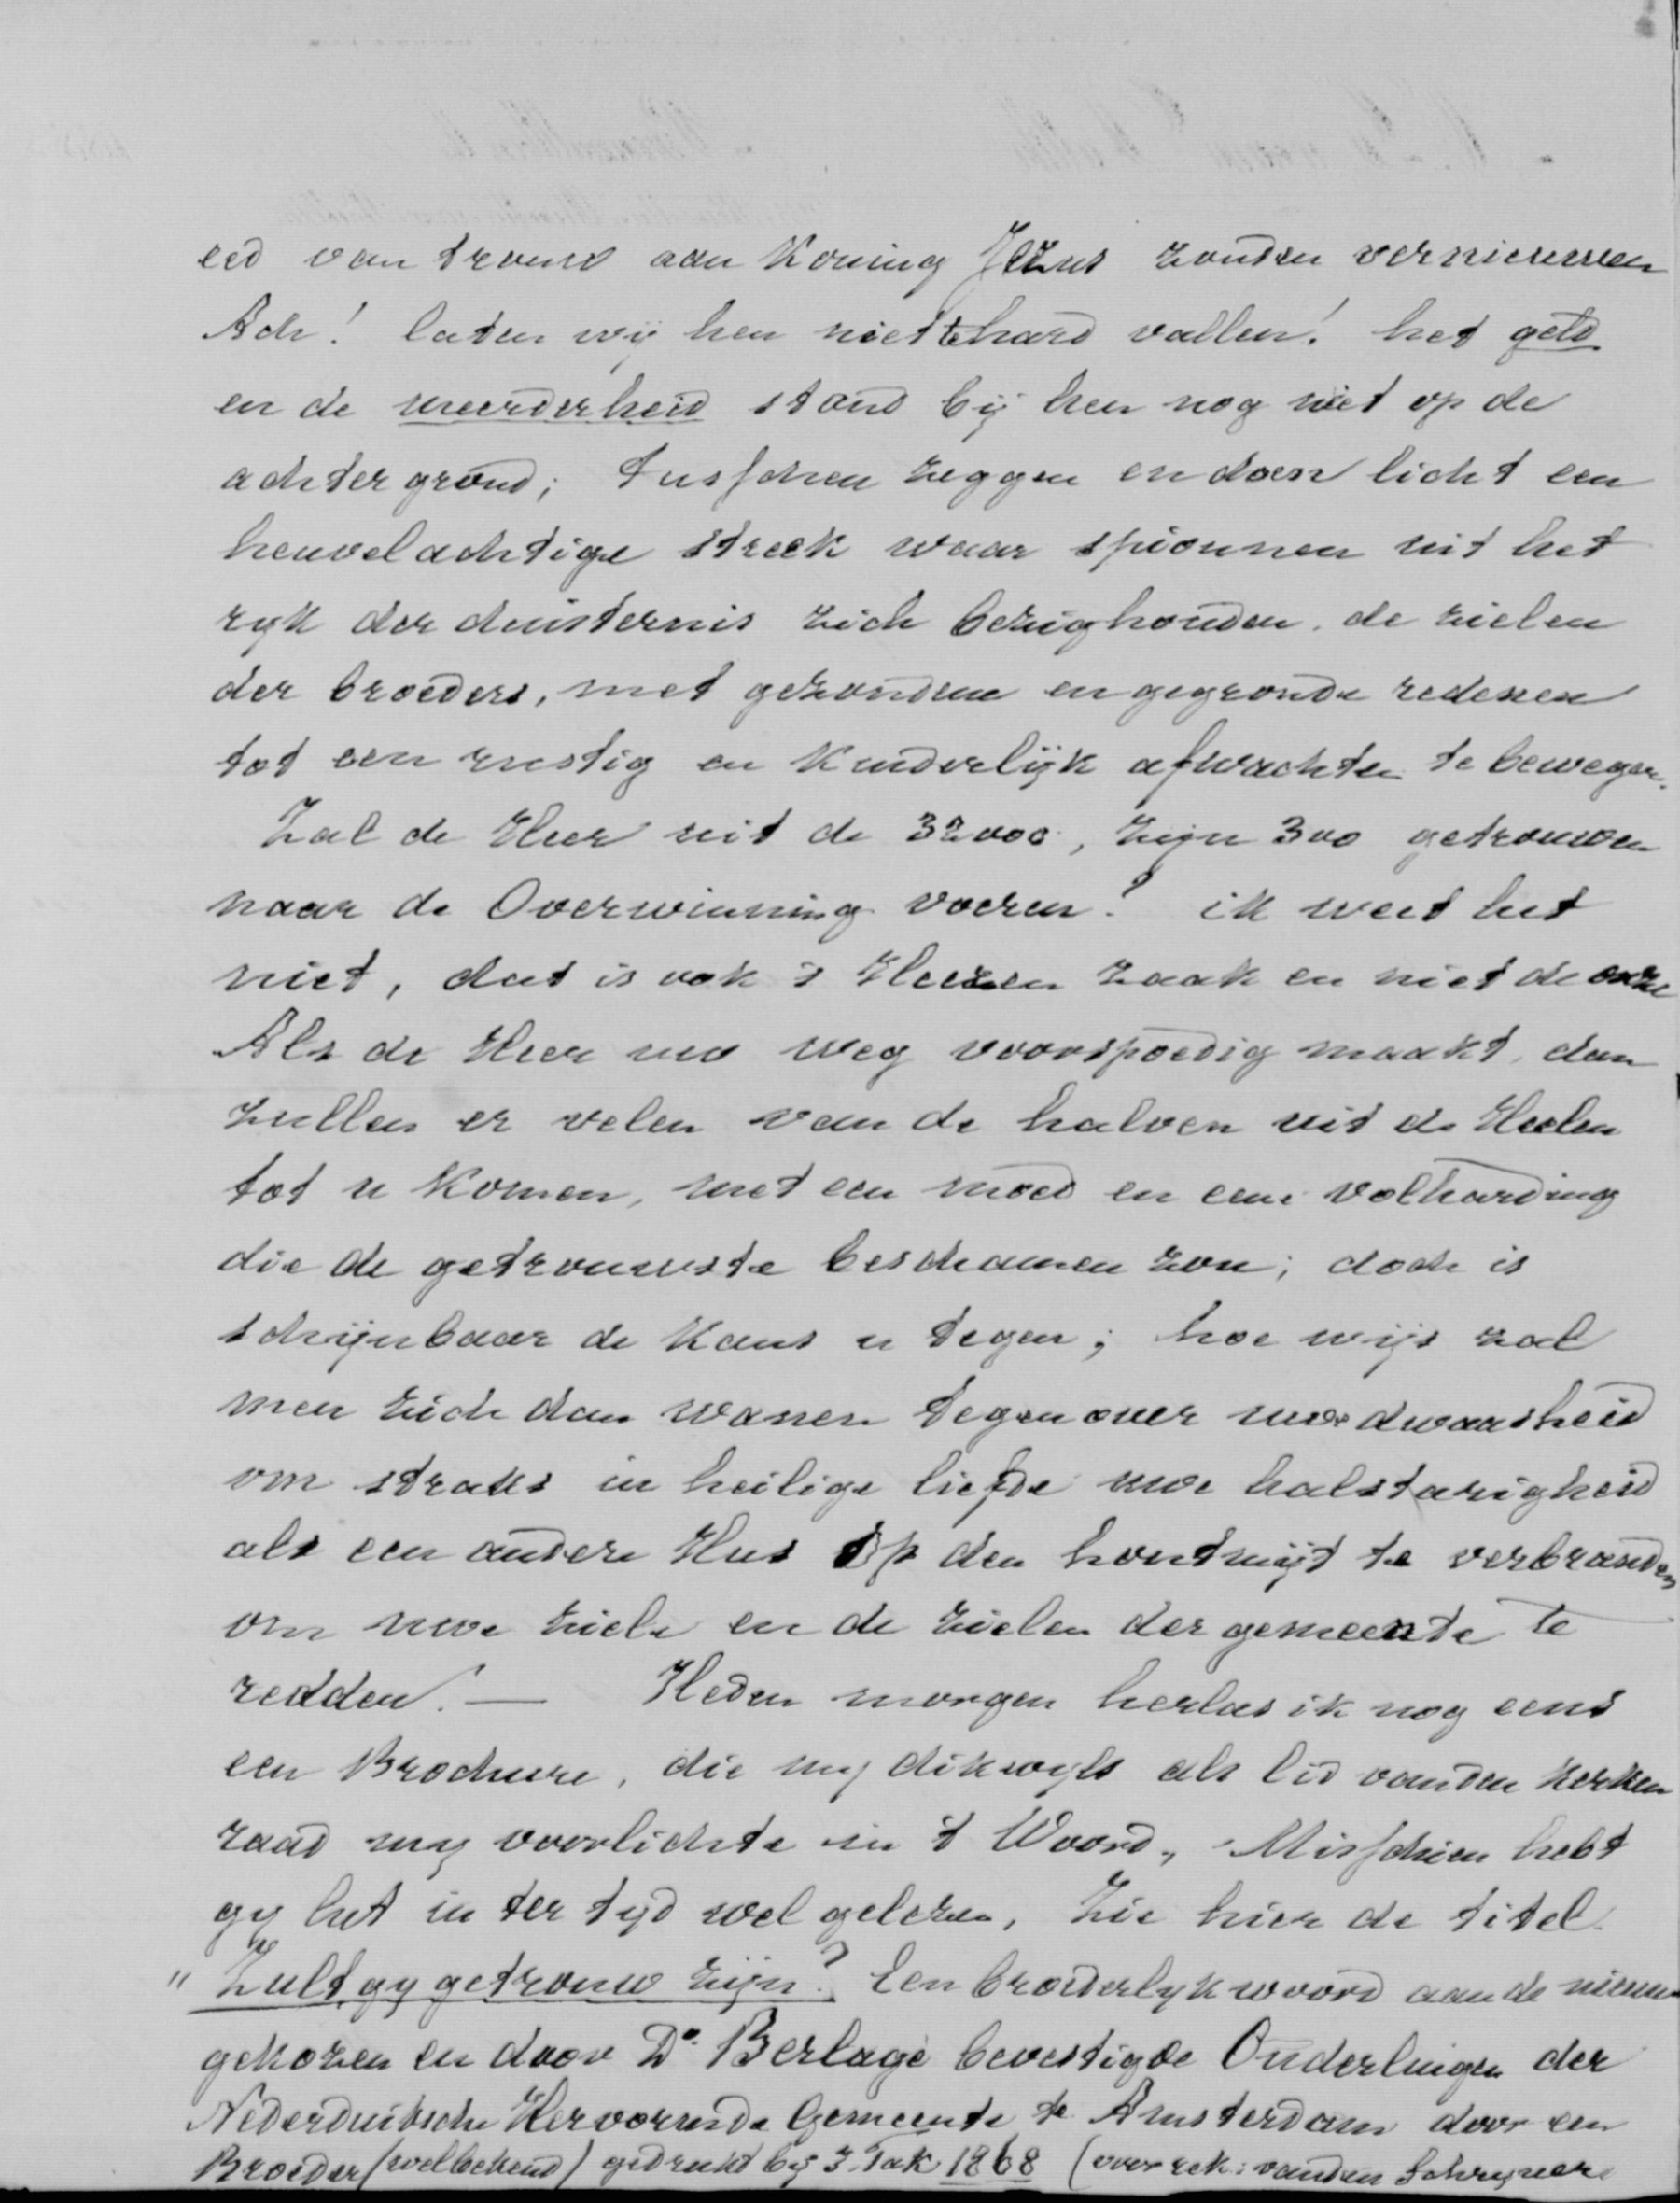 eed van trouw aan Koning Jezus zouden vernieuwen
Ach! laten wij hen niet te hard vallen! het geld
en de meerderheid stond bij hen nog niet op de
achtergrond; Tusschen zeggen en doen licht een
heuvelachtige streek waar spionnen uit het
ryk der duisternis zich bezighouden, de zielen
der broeders, met gezonden en gegronde redenen
tot een rustig en Kinderlijk afwachten te bewegen.
Zal de Heer uit de 32000, Zijn 300 getrouwen
naar de Overwinning voeren? ik weet het
niet, dat is ook 's Heeren zaak en niet de onze
Als de Heer uw weg voorspoedig maakt, dan
zullen er velen van de halven uit de Heelen
tot u Komen, met een moed en eene volharding
die de getrouwste beschamen zou; doch is
schijnbaar de Kans u tegen; hoe wijs zal
men zich dan wanen tegenover uwe dwaasheid
om straks in heilige liefde uwe halstarigheid
als een andere Hus op den houtmijt te verbranden
om uwe ziele en de zielen der gemeente te
redden! — Heden morgen herlas ik nog eens
een Brochure, die my dikwyls als lid van den Kerken
raad my voorlichtte in 't Woord, Misschien hebt
gy het in ter tyd wel gelezen, Zie hier de titel
"Zult gy getrouw zijn? Een broederlyk woord aan de nieuw
gekozen en door Ds Berlage bevestigde Ouderlingen der
Nederduitsche Hervormde Gemeente te Amsterdam door een
Broeder (welbekend) gedrukt by J. Tak 1868 (voor rek: van den Schryver